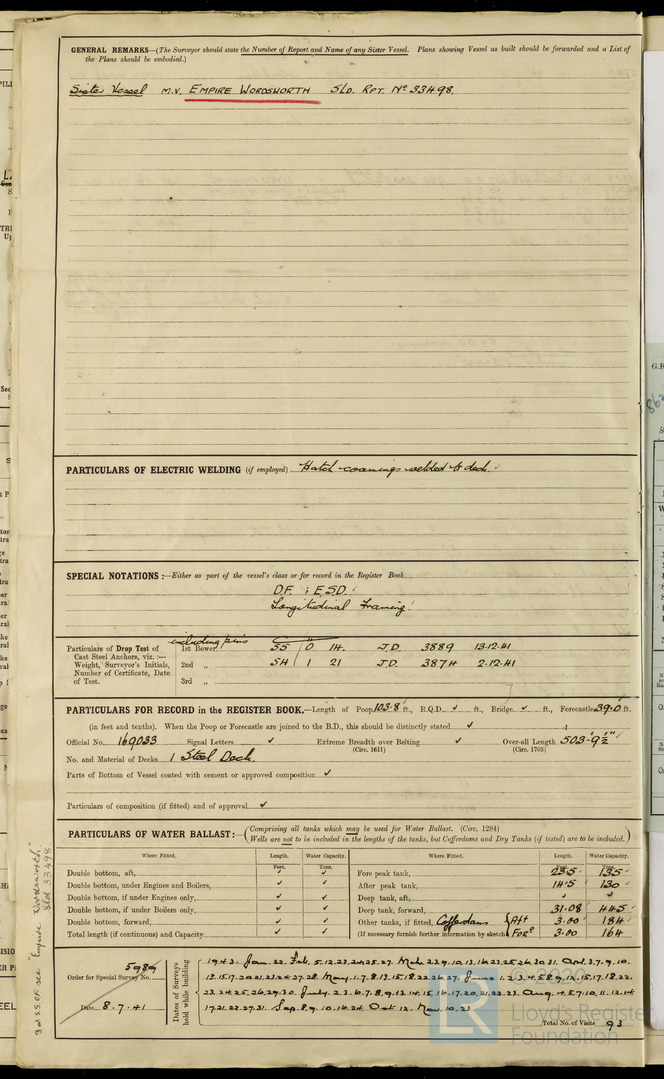 GENERAL REMARKS—(The Surveyor should state the Number of Report and Name of any Sister Vessel. Plans showing Vessel as built should be forwarded and a List of
the Plans should be embodied.)
Sister Vessel M.V. EMPIRE WORDSWORTH SLD. RPT. Nº 33498.
PARTICULARS OF ELECTRIC WELDING (if employed) Hatch coamings welded to deck.
SPECIAL NOTATIONS:—Either as part of the vessel's class or for record in the Register Book
D.F. ; E.S.D.
Longitudinal Framing.
including pins
Particulars of Drop Test of 1st Bower 55 0 14. J.D. 3889 13.12.41
Cast Steel Anchors, viz. :—
Weight, Surveyor's Initials, 2nd „ 54 1 21 J.D. 3874 2.12.41
Number of Certificate, Date
of Test. 3rd „
PARTICULARS FOR RECORD in the REGISTER BOOK.—Length of Poop 103.8 ft., R.Q.D. ✓ ft., Bridge ✓ ft., Forecastle 39.0 ft.
(in feet and tenths). When the Poop or Forecastle are joined to the B.D., this should be distinctly stated ✓
Official No. 169033 Signal Letters ✓ Extreme Breadth over Belting ✓ Over-all Length 503'-9½"
(Circ. 1611) (Circ. 1703)
No. and Material of Decks 1 Steel Deck.
Parts of Bottom of Vessel coated with cement or approved composition ✓
Particulars of composition (if fitted) and of approval ✓
PARTICULARS OF WATER BALLAST:—(Comprising all tanks which may be used for Water Ballast. (Circ. 1284)
Wells are not to be included in the lengths of the tanks, but Cofferdams and Dry Tanks (if tested) are to be included.)
Where Fitted. Length. Water Capacity. Where Fitted. Length. Water Capacity.
Feet. Tons. Feet. Tons.
Double bottom, aft, ✓ ✓ Fore peak tank, 23.5 135
Double bottom, under Engines and Boilers, ✓ ✓ After peak tank, 14.5 130
Double bottom, if under Engines only, ✓ ✓ Deep tank, aft, ✓ ✓
Double bottom, if under Boilers only, ✓ ✓ Deep tank, forward, 31.08 445
Double bottom, forward, ✓ ✓ Other tanks, if fitted, Cofferdams Aft 3.00 184
Total length (if continuous) and Capacity ✓ ✓ (If necessary furnish further information by sketch) Forᵈ 3.00 164
Order for Special Survey No. 5989
Date 8.7.41
Dates of Surveys held while building
1943. Jan. 22. Feb. 5.12.23.24.25.27. Mch. 2.3.9.10.13.16.23.25.26.30.31. Apl. 3.7.9.10.
13.15.17.20.21.23.24.27.28. May. 1.7.8.13.15.18.22.26.27. June 1.2.3.4.5.8.9.12.15.17.18.22.
23.24.25.26.29.30. July. 2.3.6.7.8.9.13.14.15.16.17.20.21.22.23. Aug. 4.5.7.10.11.12.14
17.21.22.27.31. Sep. 8.9.10.16.24. Oct 12. Nov. 10.23
Total No. of Visits 93
"Empire Wordsworth"
Sld 33498
© 2020
LR
Lloyd's Register
Foundation